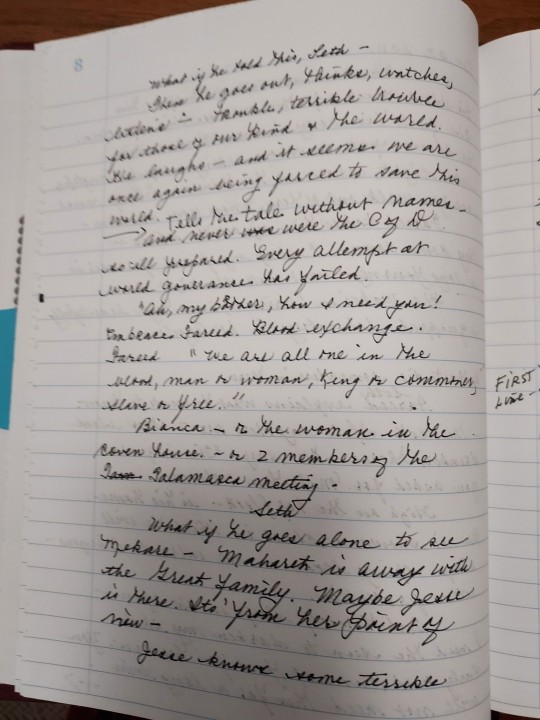 8
What if he told this, Seth –
Then he goes out, thinks, watches,
listens – trouble, terrible trouble
for those of our kind & the world.
He laughs – and it seems we are
once again being forced to save this
world.
→ Tells the tale without names –
"and never was were the C of D
so ill prepared. Every attempt at
world governance has failed.
"Ah, my brother, how I need you!
Embraces Fareed. Blood exchange.
Fareed "We are all one in the
blood, man or woman, King or commoner,
slave or free."
Bianca – or the woman in the
coven house. – or 2 members of the
Talamasca meeting –
Seth
What if he goes alone to see
Mekare – Maharet is away with
the Great Family. Maybe Jesse
is there. Its' from her point of
view –
Jesse knows some terrible
FIRST
Line –